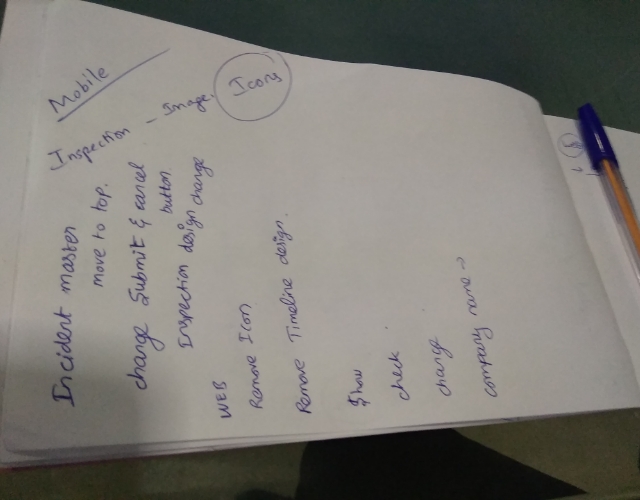 Mobile
Inspection - Image. Icons
Incident master
move to top.
change Submit & cancel
button.
Inspection design change
WEB
Remove Icon
Remove Timeline design.
Show
check
change
company name →